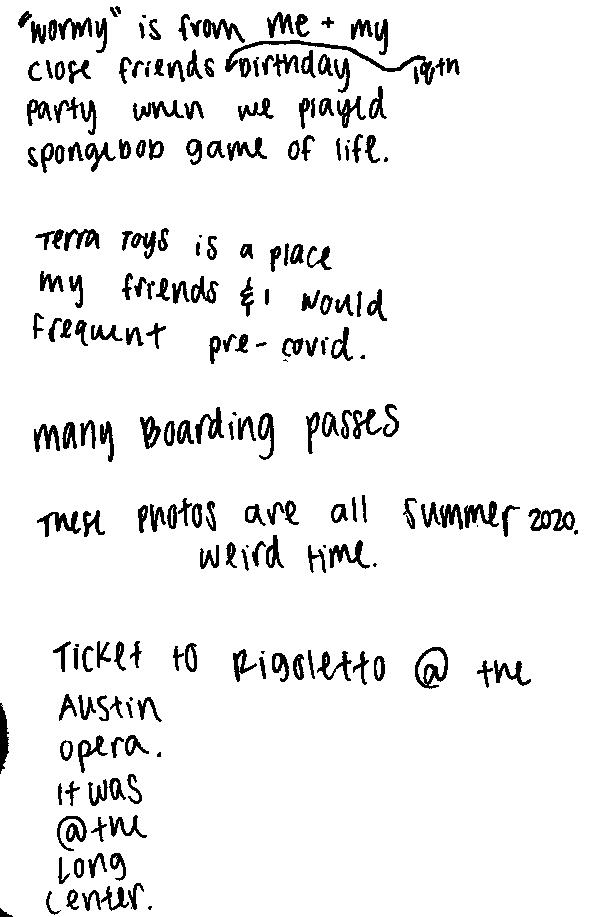 "wormy" is from me + my
close friends 18th birthday
party when we played
spongebob game of life.
Terra Toys is a place
my friends & I would
frequent pre-covid.
many Boarding passes
These photos are all summer 2020.
weird time.
Ticket to Rigoletto @ the
Austin
opera.
It was
@ the
Long
Center.